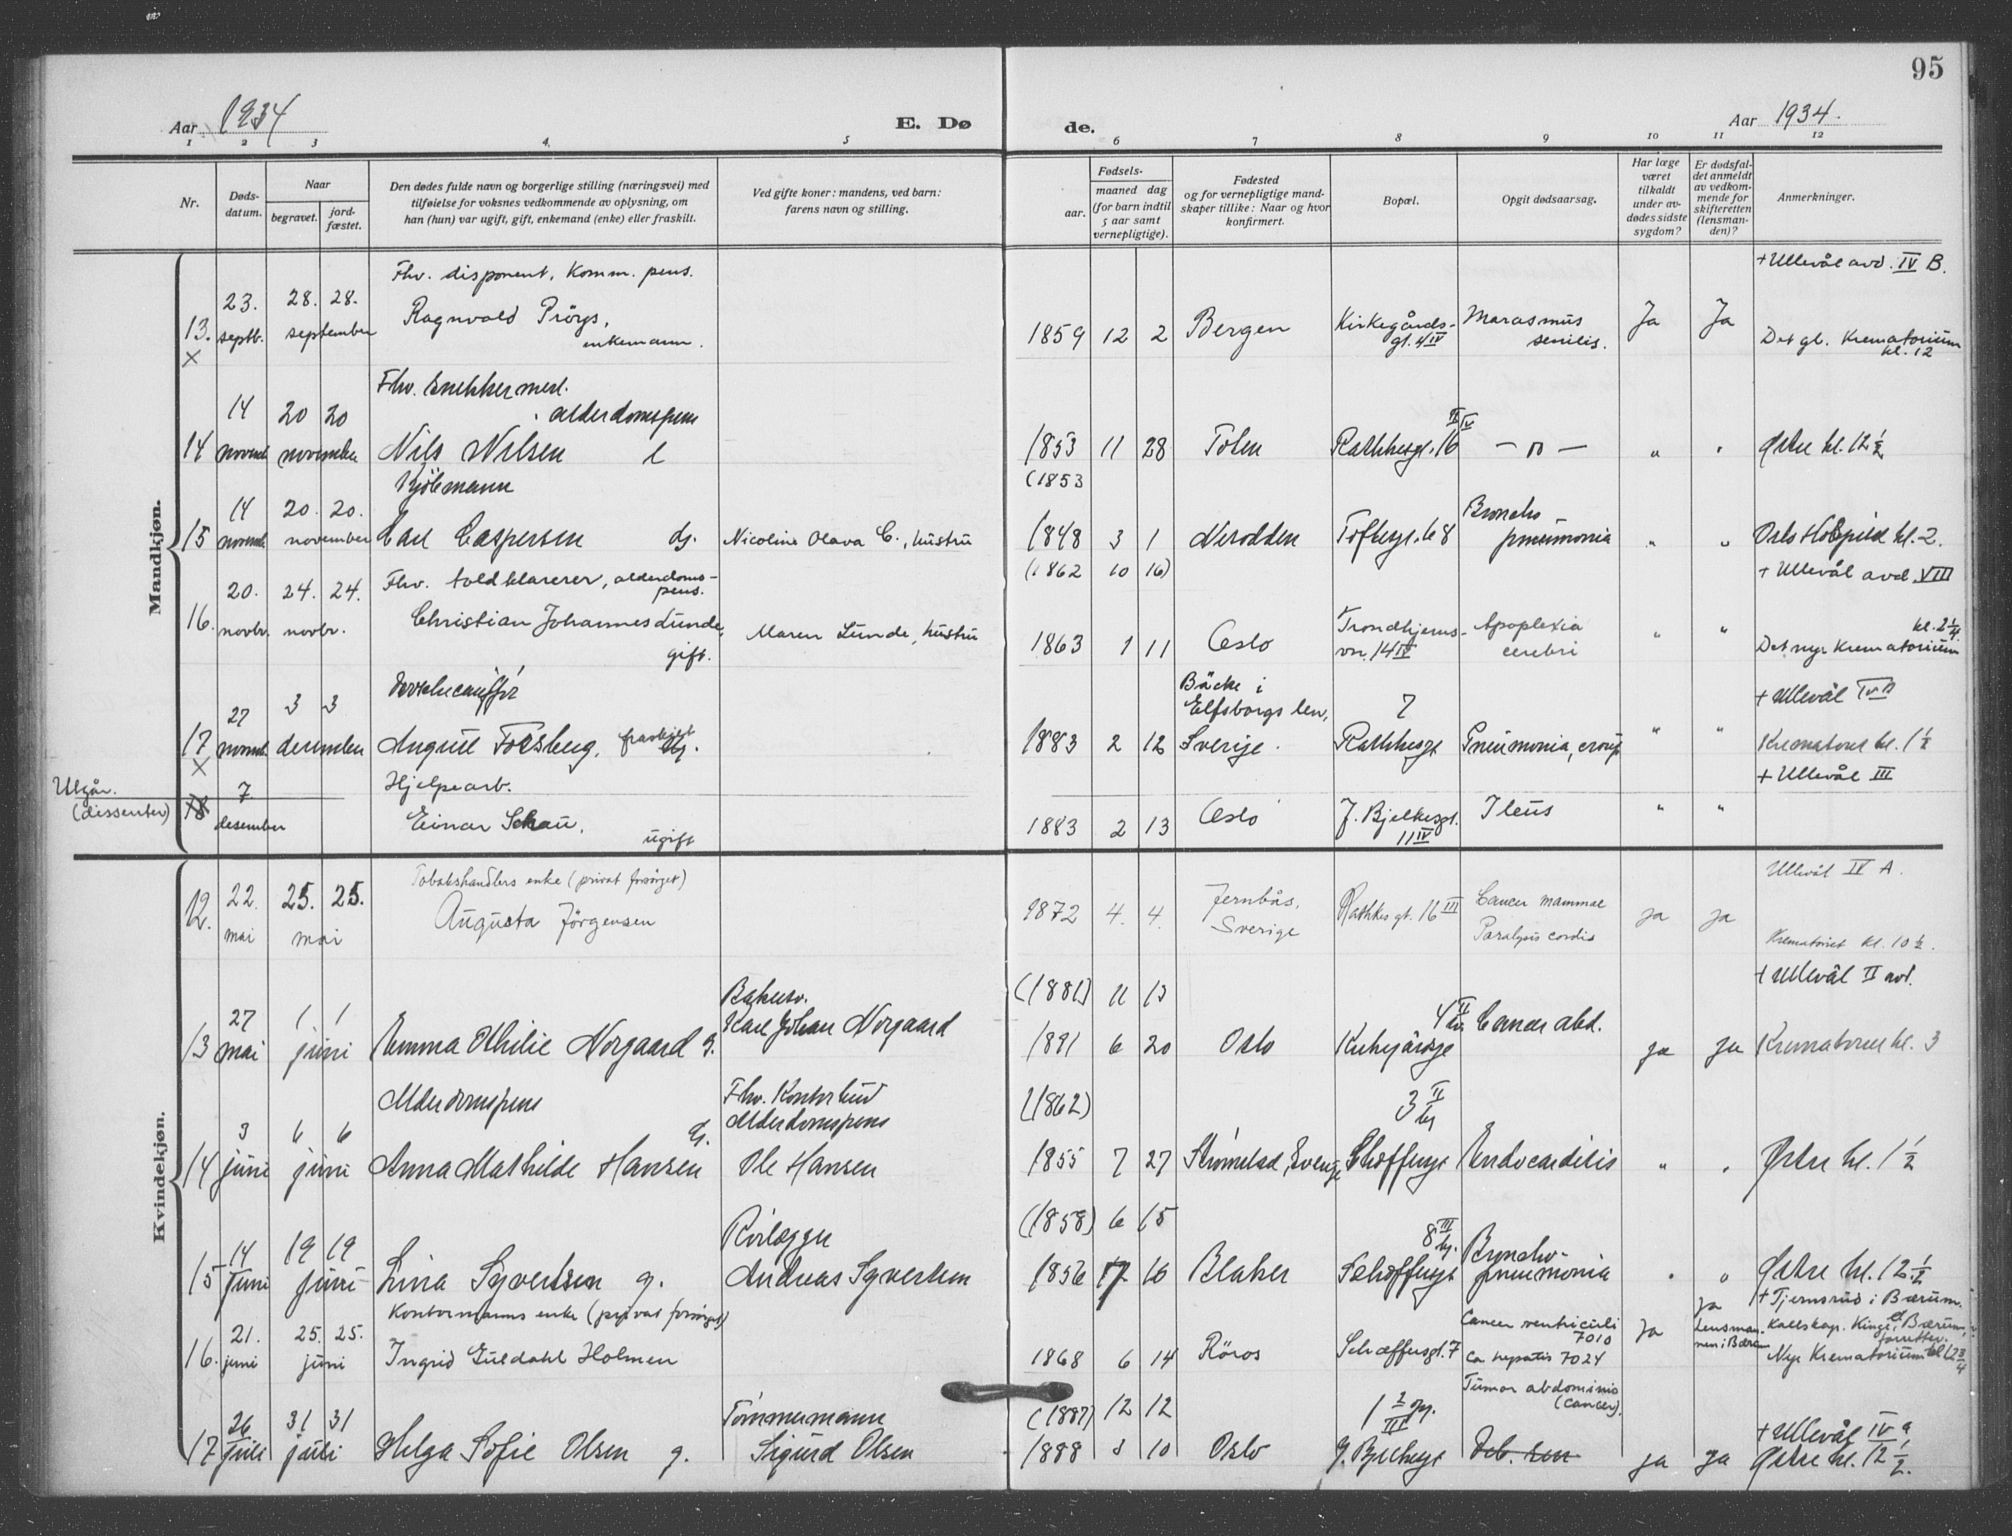 95
Aar 1934
E. Dø
de.
Aar 1934.
1 2 3 4. 5 6 7 8 9 10 11 12
Nr.
Døds-
datum.
Naar
begravet.
jord-
fæstet.
Den dødes fulde navn og borgerlige stilling (næringsvei) med
tilføielse for voksnes vedkommende av oplysning, om
han (hun) var ugift, gift, enkemand (enke) eller fraskilt.
Ved gifte koner: mandens, ved barn:
farens navn og stilling.
Fødsels-
aar.
maaned dag
(for barn indtil
5 aar samt
vernepligtige).
Fødested
og for vernepligtige mand-
skaper tillike: Naar og hvor
konfirmert.
Bopæl.
Opgit dødsaarsag.
Har læge
været
tilkaldt
under av-
dødes sidste
sygdom?
Er dødsfal-
det anmeldt
av vedkom-
mende for
skifteretten
(lensman-
den)?
Anmerkninger.
Mandkjøn.
Fhv. disponent, Komm. pens.
+ Ullevål avd. IV B.
23. 28. 28.
13. septb. september Ragnvald Prörgs,
enkemann.
1859 12 2 Bergen Kirkegårds-
gt. 4 IV
Marasmus
senilis.
Ja Ja
Det gl. Krematorium
kl. 12
x
Fhv. snekkermest.
alderdomspens
14 20 20
14 novemb. november Nils Nilsen e
1853 11 28 Toten Rathkesgt. 16 II/IV — " — " " Østre kl. 12 1/2
Kjöbmann
(1853
14 20. 20.
15 novemb. november Carl Caspersen g. Nicoline Olava C., hustru
1848 3 1 Nesodden Toftesgt. 68
Broncho
pneumonia
" " Oslo Hospital kl. 2.
(1862 10 16)
Fhv. toldklarerer, alderdoms-
pens.
+ Ullevål avd. VIII
20. 24. 24.
16. novbr. novbr. Christian Johannes Lunde,
gift.
Maren Lunde, hustru
1863 1 11 Oslo Trondhjems-
vn. 14 IV
Apoplexia
cerebri
" "
kl. 2 1/4.
Det nye Krematorium
27 3 3
17 novemb. desember August Forsberg, fraskilt
1883 2 12
Bäcke i
Elfsborgs len,
Sverige.
7
Rathkesgt
Pneumonia, croup
" "
+ Ullevål IV B
Krematoriet kl. 1 1/2
x
Utgår.
(dissenter)
18
7.
desember
Hjelpearb.
Einar Schau,
ugift
1883 2 13 Oslo J. Bjelkesgt.
11 IV
Ileus " "
+ Ullevål III
Kvindekjøn.
Tobakshandlers enke (privat forsörget)
Ullevål IV A.
12. 22. mai 25. 25. mai Augusta Jörgensen
1872 4. 4. Jernbås,
Sverige
Rathkes gt. 16 III
Cancer mammae
Paralysis cordis
ja ja
Krematoriet kl. 10 1/2.
+ Ullevål II avd.
(1881) 11 13
27 1 1
13 mai juni Emma Othilie Norgaard g.
Bakersv.
Karl Johan Norgaard
1891 6 20 Oslo Kirkegårdsgt
Cancer abd.
ja ja Krematoriet kl. 3
Alderdomspens
Fhv. Kontorbud
Alderdomspens
(1862)
3 II
3 6 6
14 juni juni Anna Mathilde Hansen g. Ole Hansen
1855 7 27 Strömstad, Sverige Schæffersgt Endocarditis " " Østre kl. 1 1/2
(1858) 6 15
8 III
14 19 19
15 juni juni Lina Syvertsen g.
Rörlægger
Andreas Syvertsen
1856 12 16 Blaker Schæffersgt
Broncho-
pneumonia
" " Østre kl. 12 1/2
Kontormanns enke (privat forsörget)
21. 25. 25.
16. juni juni Ingrid Guldahl Holmen
1868 6 14 Röros Schæffersgt. 7
Cancer ventriculi
7010
Ca hepatis 7024
Ja
Ja
Lensman-
nen i Bærum
+ Tjernsrud i Bærum.
Kallskap. Kinge, Ø. Bærum,
forretter.
Nye Krematorium kl 12 3/4
Tumor abdominis
(cancer).
(1887) 12 12
26 31 31
17 juli juli Helga Sofie Olsen g.
Tömmermann
Sigurd Olsen
1888 8 10 Oslo J. Bjelkesgt
ja ja
+ Ullevål IV a
Østre kl. 12 1/2.